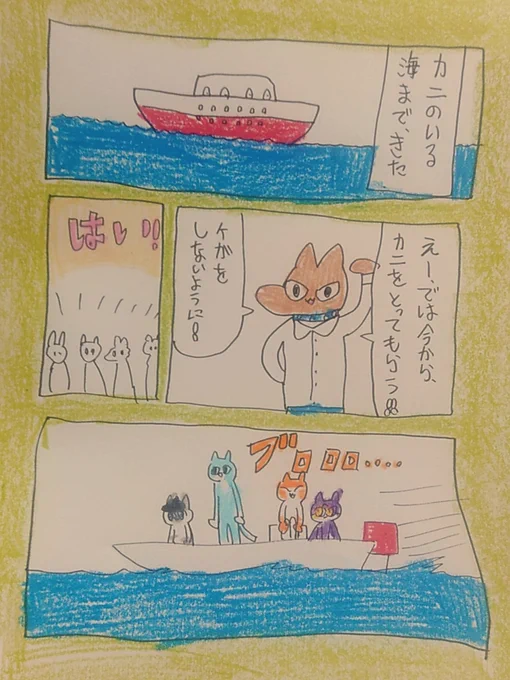 カニのいる
海まで、きた
えー、では今から、
カニをとってもらう!!
ケガを
しないように!
はい!!
ブロロロ....